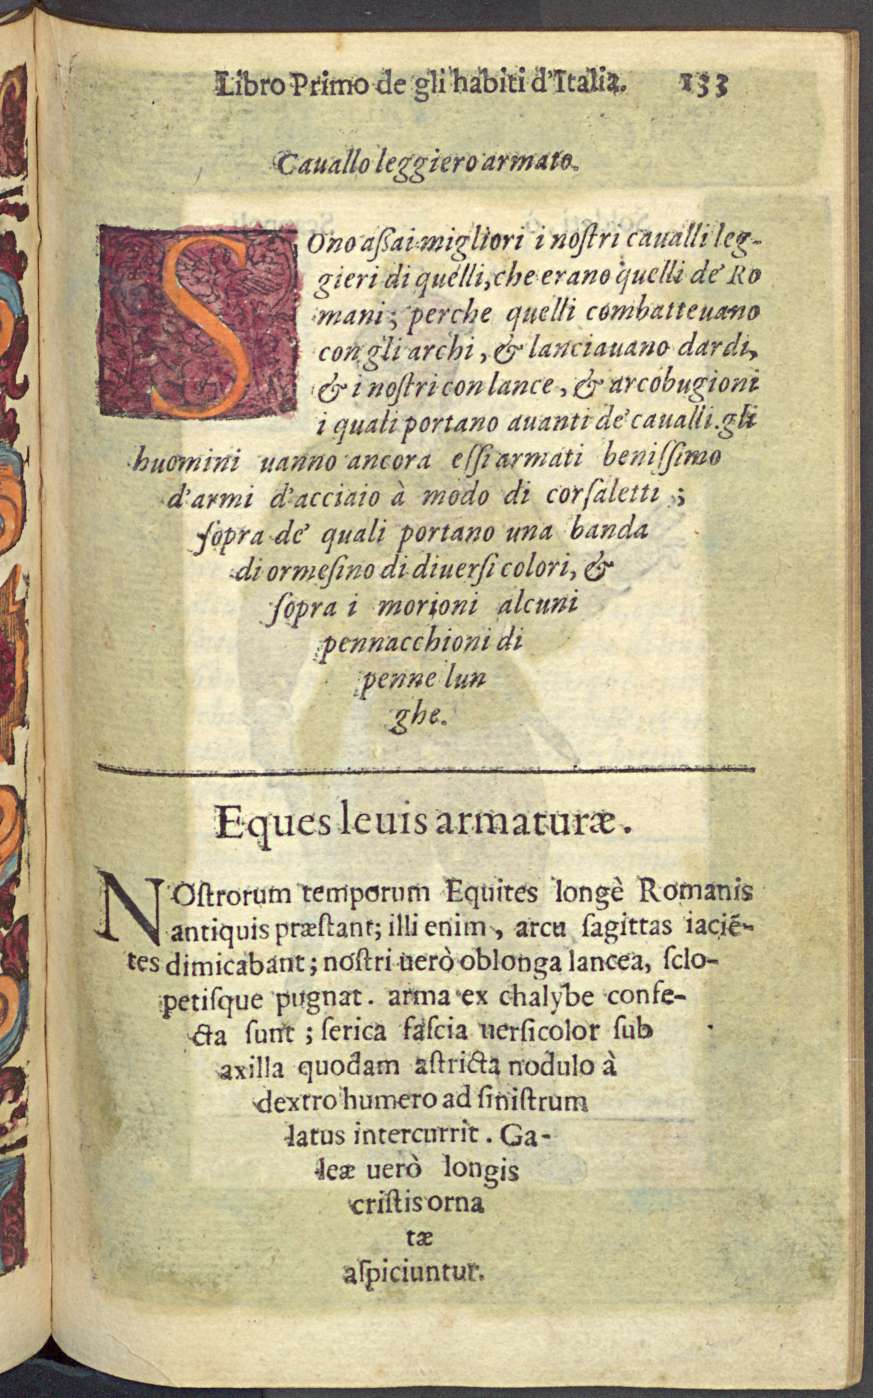 Libro Primo de gli habiti d'Italia. 133
Cauallo leggiero armato.
SOno aſſai migliori i noſtri caualli leg-
gieri di quelli, che erano quelli de' Ro
mani; perche quelli combatteuano
con gli archi, & lanciauano dardi,
& i noſtri con lance, & arcobugioni
i quali portano auanti de' caualli. gli
huomini uanno ancora eſſi armati beniſſimo
d'armi d'acciaio à modo di corſaletti;
ſopra de' quali portano una banda
di ormeſino di diuerſi colori, &
ſopra i morioni alcuni
pennacchioni di
penne lun
ghe.
Eques leuis armaturæ.
NOſtrorum temporum Equites longè Romanis
antiquis præſtant; illi enim, arcu ſagittas iaciẽ-
tes dimicabant; noſtri uerò oblonga lancea, ſclo-
petiſque pugnat. arma ex chalybe confe-
cta ſunt; ſerica faſcia uerſicolor ſub
axilla quodam aſtricta nodulo à
dextro humero ad ſiniſtrum
latus intercurrit. Ga-
leæ uerò longis
criſtis orna
tæ
aſpiciuntur.